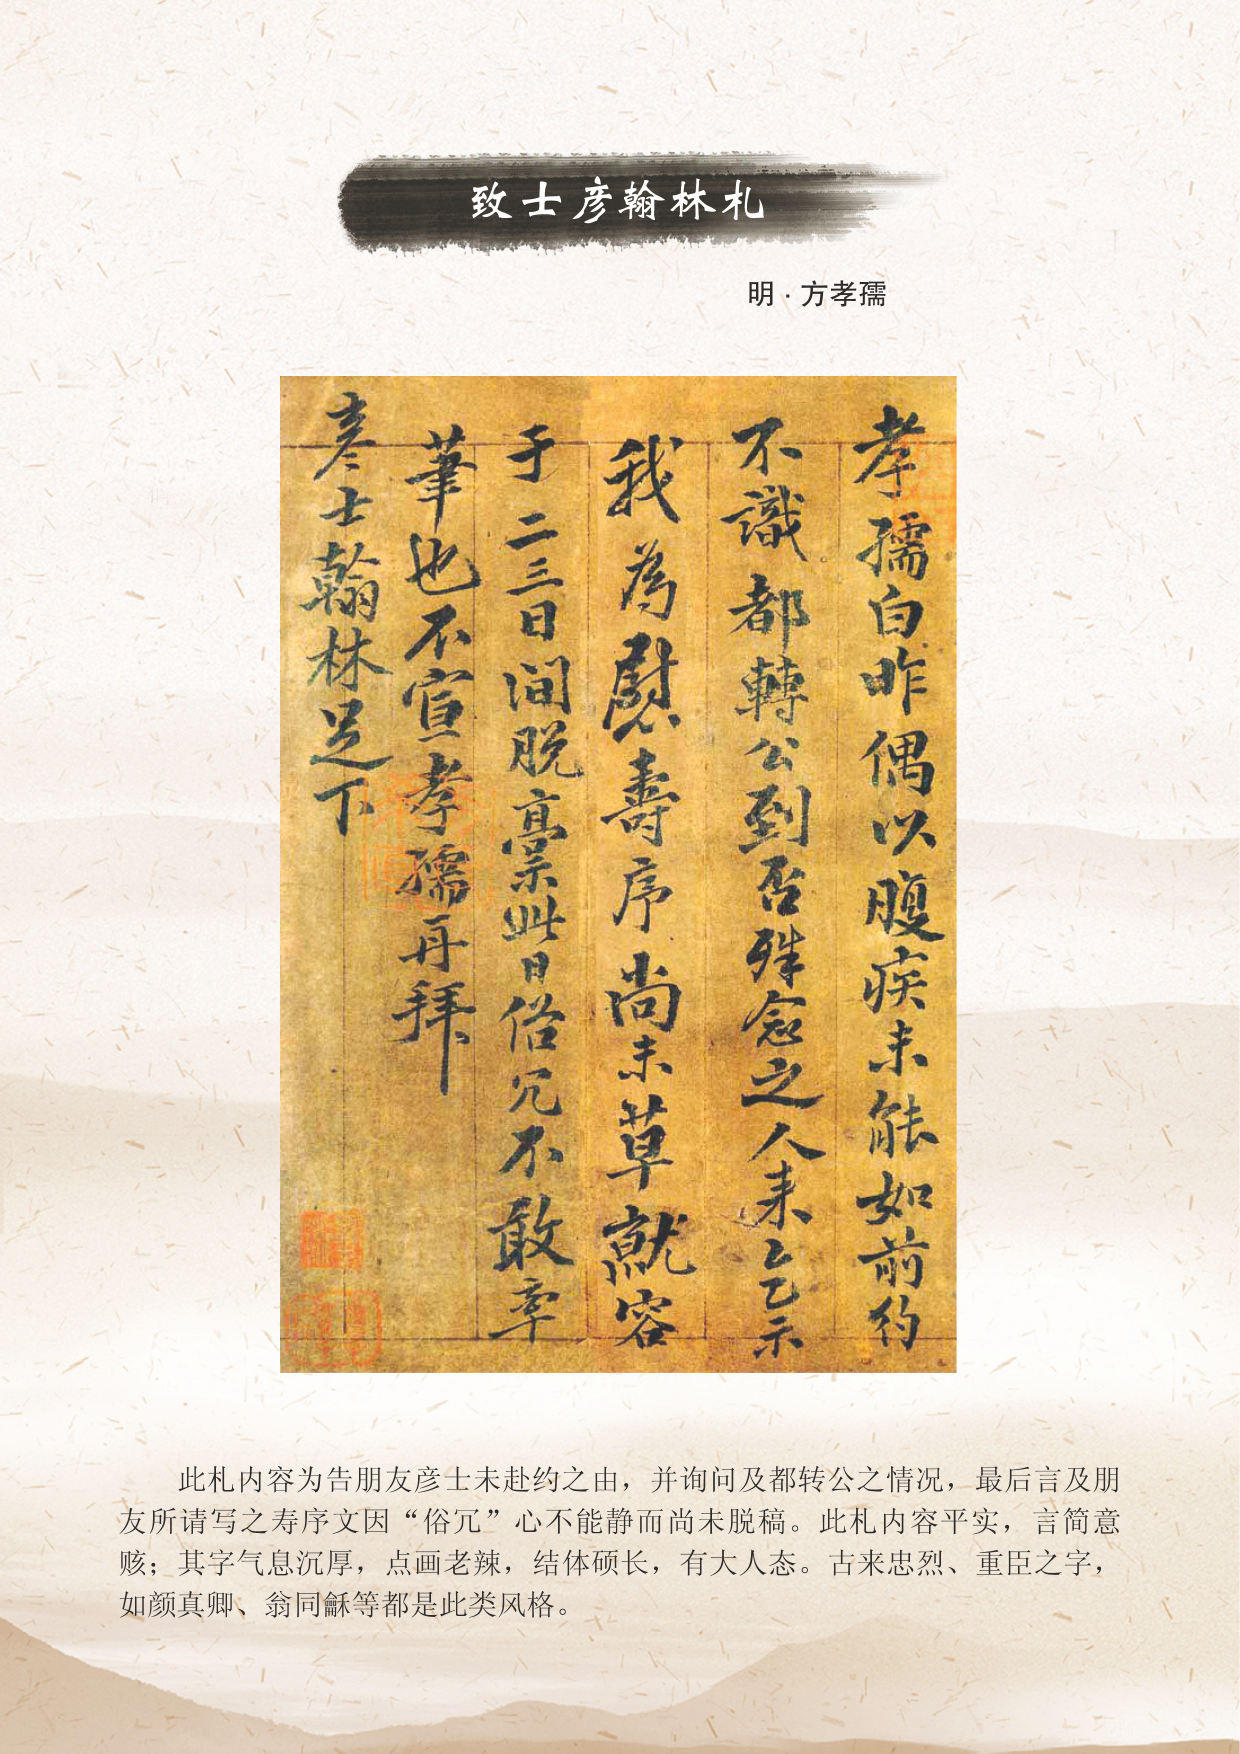 致士彦翰林札
明·方孝孺
孝孺白昨偶以腹疾未能如前約
不識都轉公到否殊念之人来乞示
我為慰壽序尚未草就容
于二三日间脱槀此日俗冗不敢率
筆也不宣孝孺再拜
彦士翰林足下
此札内容为告朋友彦士未赴约之由，并询问及都转公之情况，最后言及朋
友所请写之寿序文因“俗冗”心不能静而尚未脱稿。此札内容平实，言简意
赅；其字气息沉厚，点画老辣，结体硕长，有大人态。古来忠烈、重臣之字，
如颜真卿、翁同龢等都是此类风格。